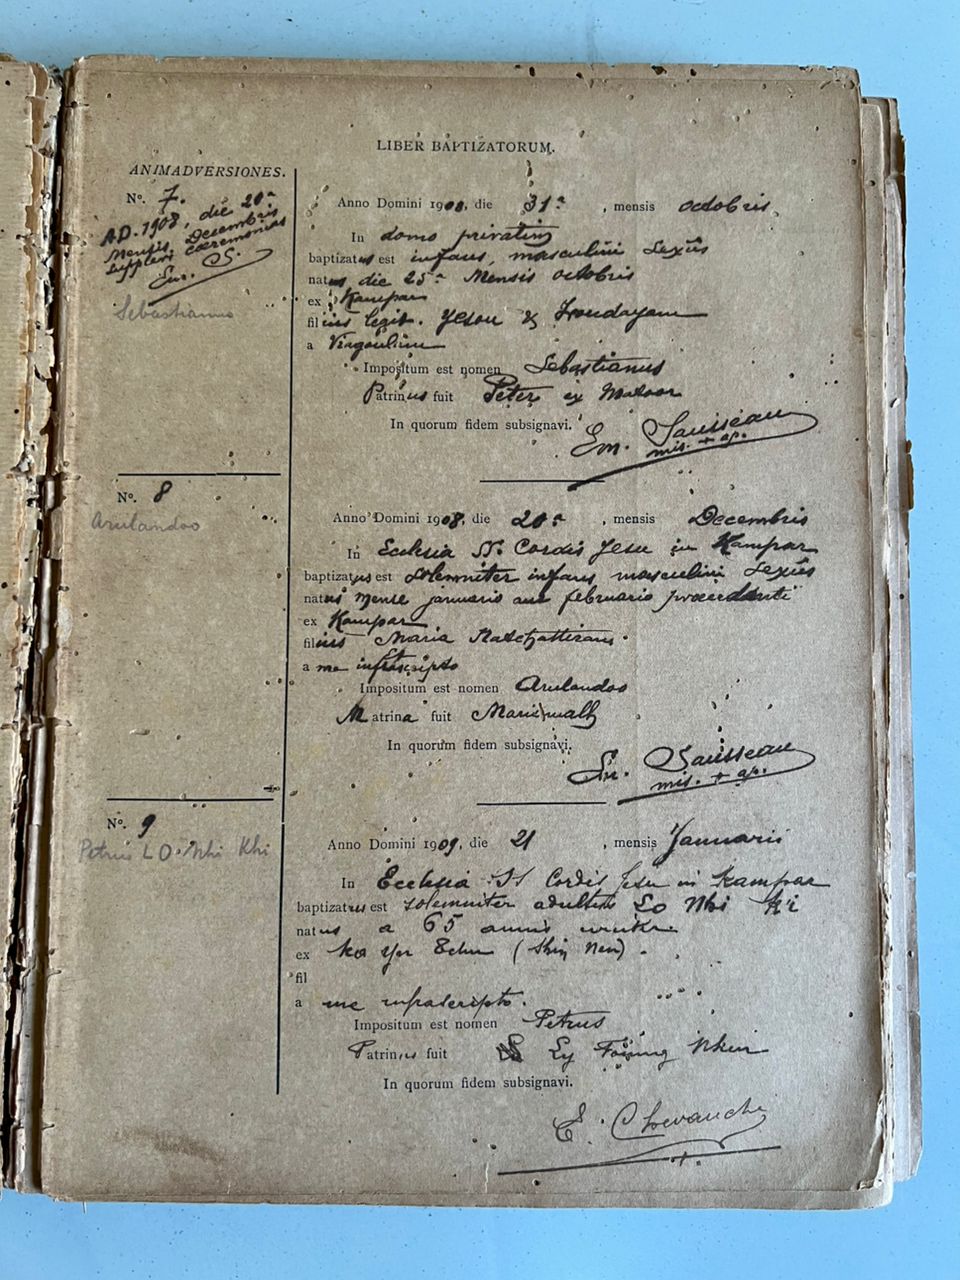 LIBER BAPTIZATORUM.
ANIMADVERSIONES.
No. 7.
A.D. 1908, die 20a
Mensis Decembris
supplevi caeremonias
Em. S.
Sebastianus
Anno Domini 1908, die 31a, mensis octobris
In domo privatim
baptizatus est infans, masculini sexûs
natus die 25a Mensis octobris
ex Kampar
filius legit. Yesou &
a
Impositum est nomen Sebastianus
Patrinus fuit Peter ex
In quorum fidem subsignavi.
Em. Sausseau
mis. + ap.
No. 8
Arulandoo
Anno Domini 1908, die 20a, mensis Decembris
In Ecclesia SS. Cordis Jesu in Kampar
baptizatus est solemniter infans masculini sexûs
natus mense januario aut februario praecedenti
ex Kampar
filius Maria
a me infrascripto
Impositum est nomen Arulandoo
Matrina fuit
In quorum fidem subsignavi.
Em. Sausseau
mis. + ap.
No. 9
Petrus LO Nhi Khi
Anno Domini 1909, die 21, mensis Januarii
In Ecclesia SS Cordis Jesu in Kampar
baptizatus est solemniter adultus Lo Nhi Ki
natus a 65 annis
ex ka yn
fil
a me infrascripto.
Impositum est nomen Petrus
Patrinus fuit Ly
In quorum fidem subsignavi.
E. Chevauche